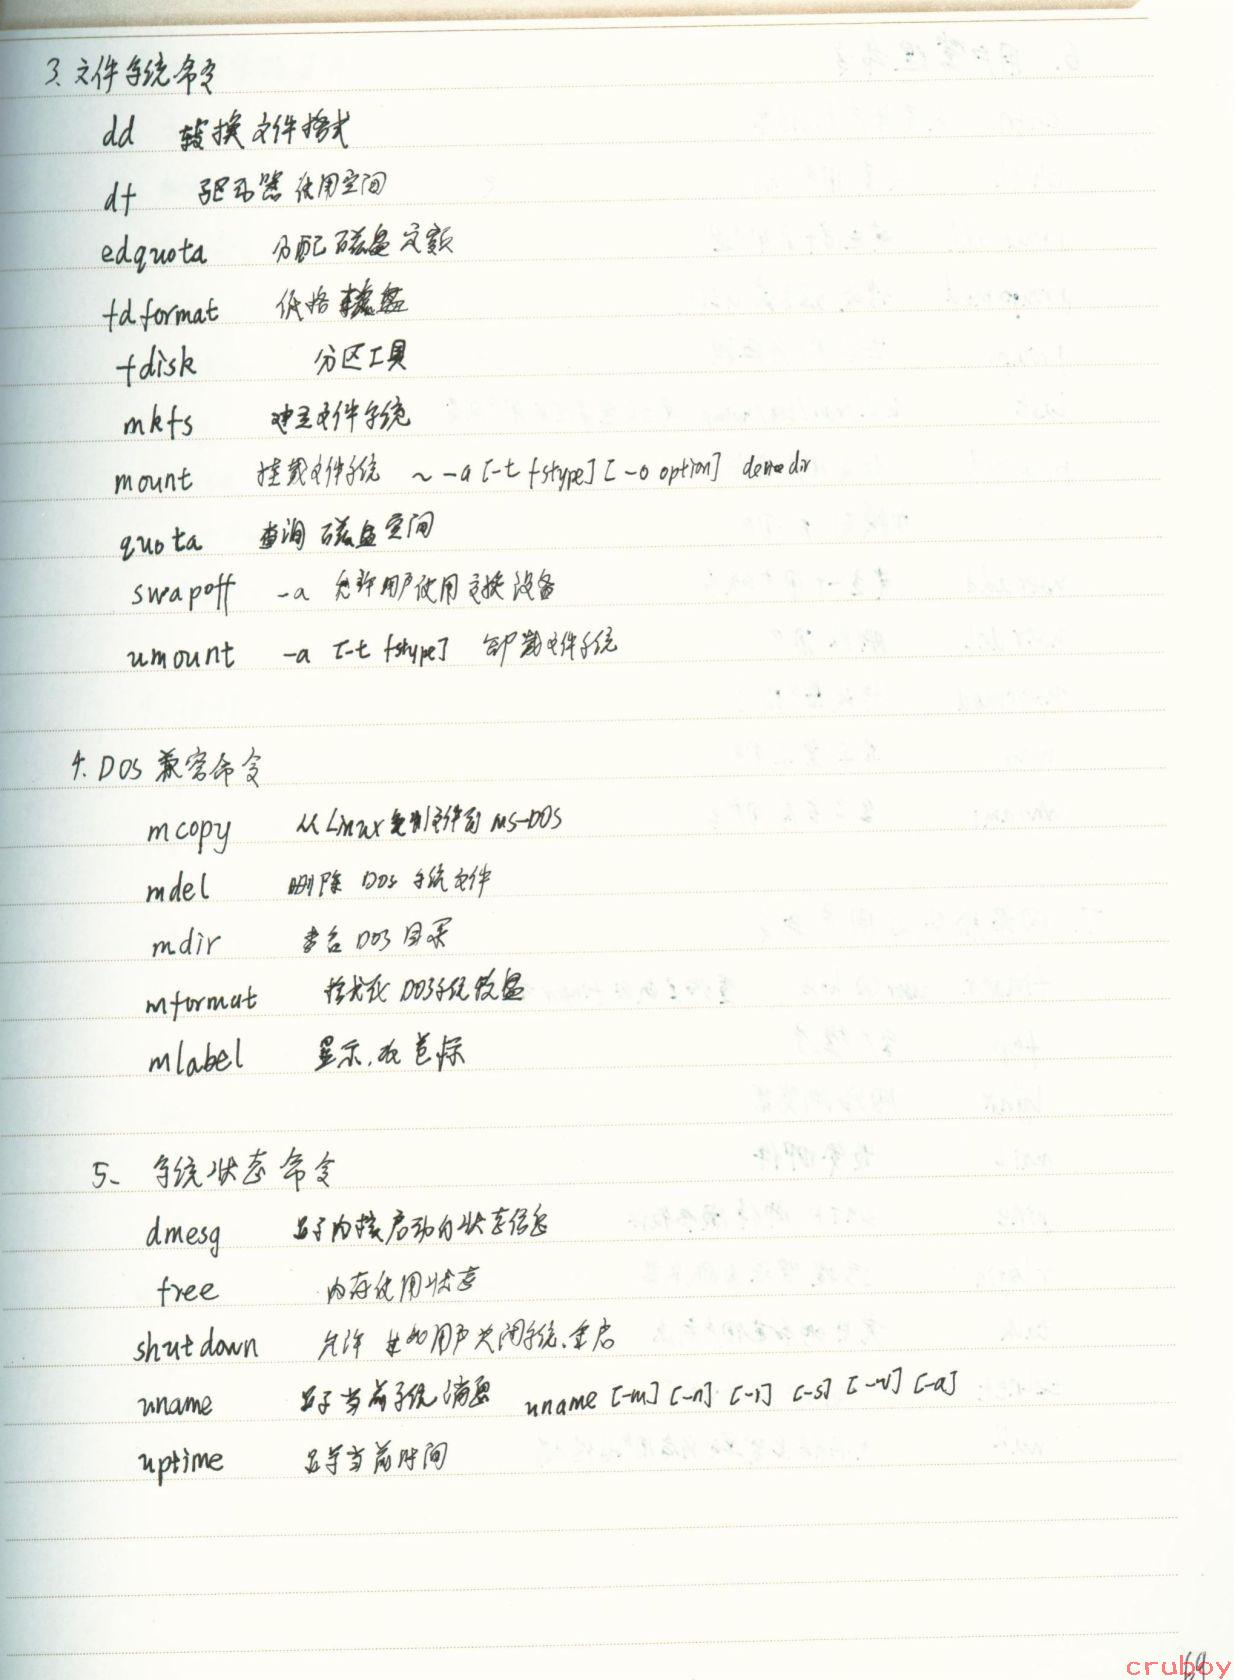 3. 文件系统命令
dd 转换文件格式
df 驱动器使用空间
edquota 分配磁盘定额
fdformat 低格软盘
fdisk 分区工具
mkfs 建立文件系统
mount 挂载文件系统 ~ -a [-t fstype] [-o option] dir
quota 查询磁盘空间
swapoff -a 允许用户使用交换设备
umount -a [-t fstype] 卸载文件系统
4. DOS 兼容命令
mcopy 从Linux复制文件到 MS-DOS
mdel 删除 DOS 系统文件
mdir 查看 DOS 目录
mformat 格式化 DOS系统软盘
mlabel 显示.改卷标
5、 系统状态命令
dmesg 显示内核启动的状态信息
free 内存使用状态
shutdown 允许 用户关闭系统.重启
uname 显示当前系统消息 uname [-m] [-n] [-r] [-s] [-v] [-a]
uptime 显示当前时间
69
cruboy